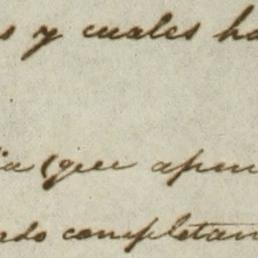 s y cuales ha
ia (que apen
ado completam